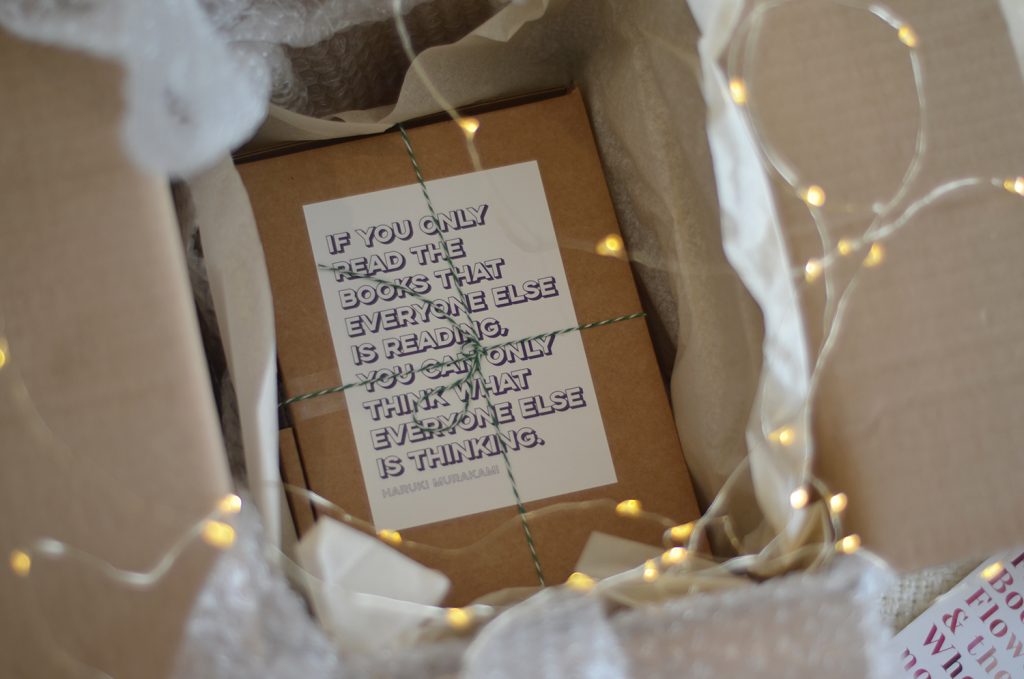 IF YOU ONLY
READ THE
BOOKS THAT
EVERYONE ELSE
IS READING,
YOU CAN ONLY
THINK WHAT
EVERYONE ELSE
IS THINKING.
HARUKI MURAKAMI
Flow
& the